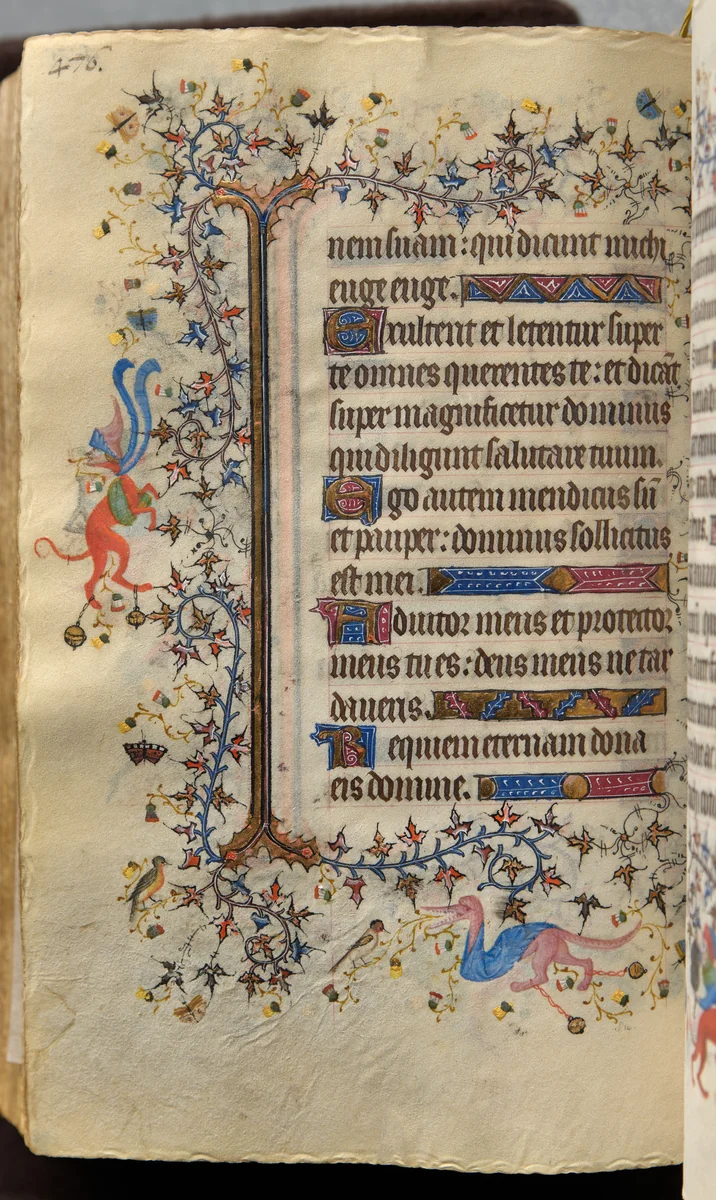 476.
nem suam : qui dicunt michi
euge euge.
Exultent et letentur super
te omnes querentes te : et dicāt
super magnificetur dominus
qui diligunt salutare tuum.
Ego autem mendicus sū
et pauper : dominus sollicitus
est mei.
Adiutor meus et protector
meus tu es : deus meus ne tar
daveris.
Requiem eternam dona
eis domine.